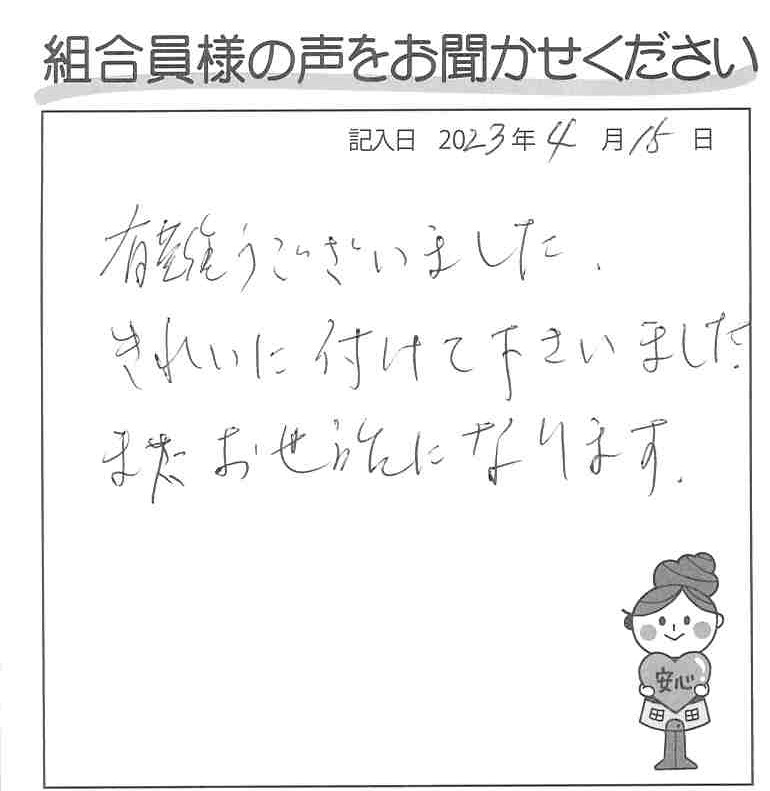 組合員様の声をお聞かせください
記入日 2023年 4 月 15 日
有難うございました.
きれいに付けて下さいました.
またお世話になります.
安心